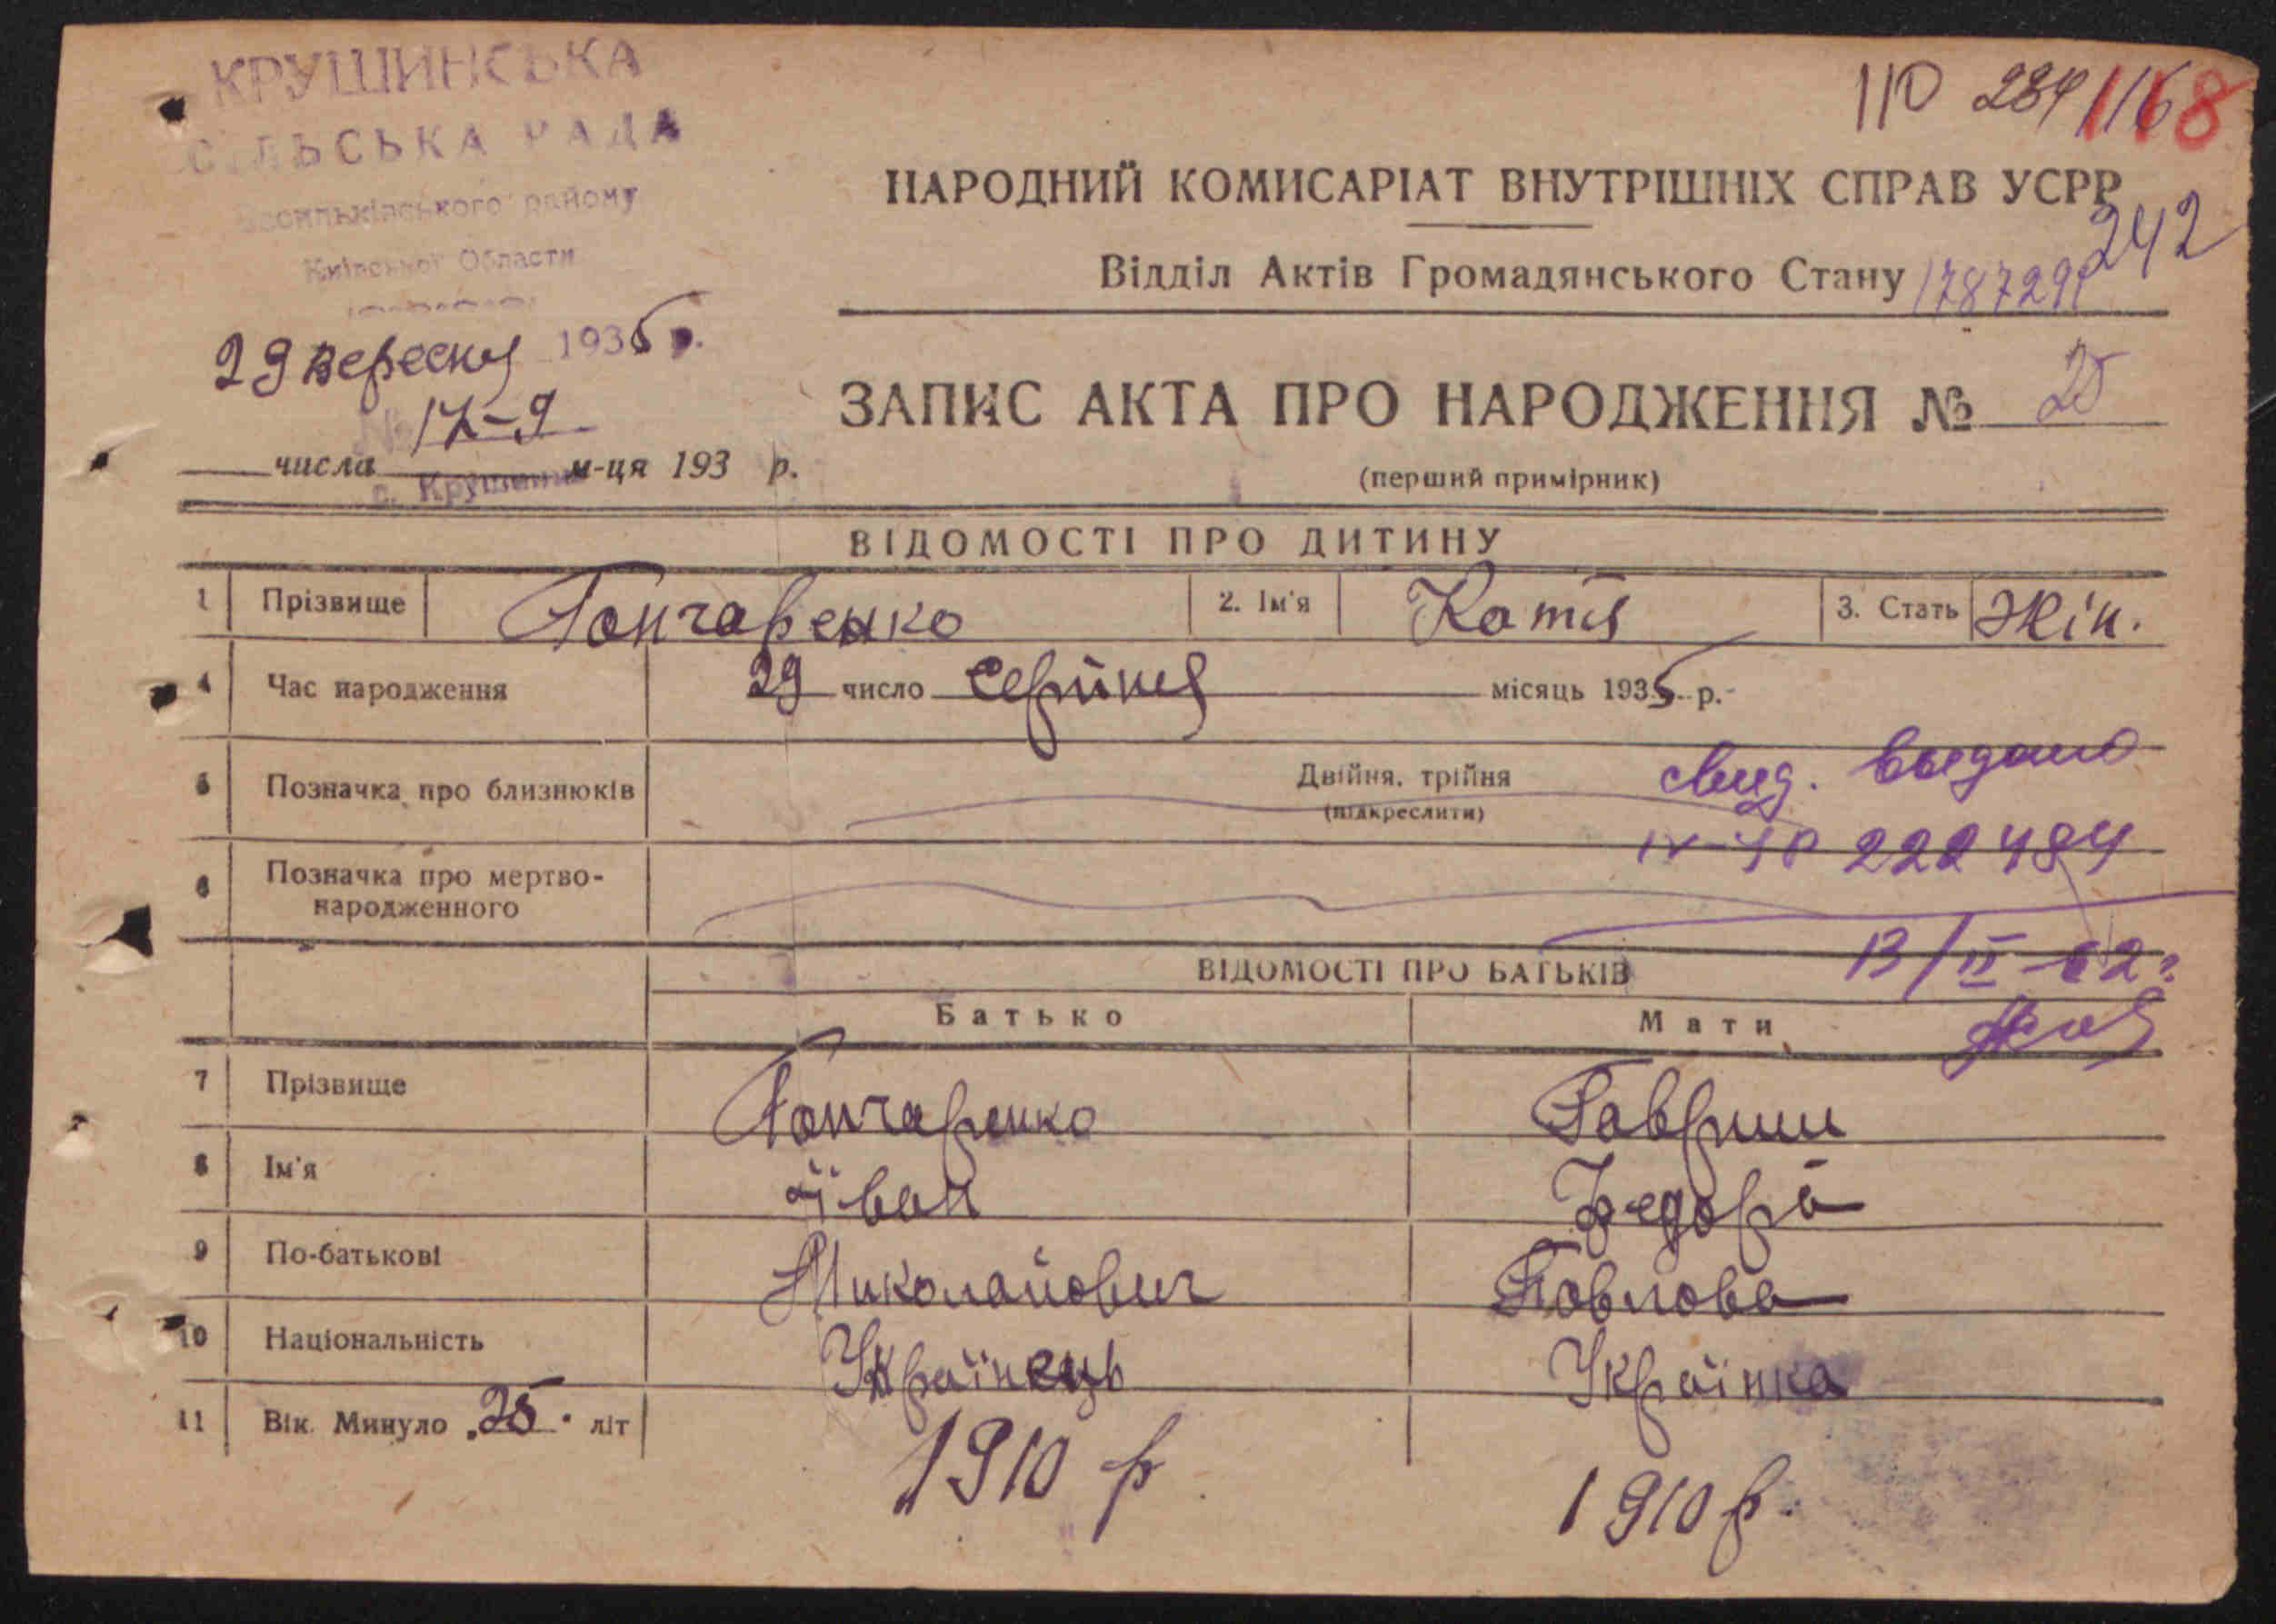 КРУШИНСЬКА
СІЛЬСЬКА РАДА
Васильківського району
Київської Области
29 вересня 1935 р.
№ 17-9
с. Крушинка
числа м-ця 193 р.
110 284 116 168
НАРОДНИЙ КОМИСАРІАТ ВНУТРІШНІХ СПРАВ УСРР
242
Відділ Актів Громадянського Стану
ЗАПИС АКТА ПРО НАРОДЖЕННЯ № 25
(перший примірник)
ВІДОМОСТІ ПРО ДИТИНУ
1 Прізвище Гончаренко 2. Ім'я Катя 3. Стать Жін.
4 Час народження 29 число Серпня місяць 1935 р.
5 Позначка про близнюків Двійня, трійня
(підкреслити)
Свид. выдано
222484
6 Позначка про мертво-
народженного
13/II-62г.
ВІДОМОСТІ ПРО БАТЬКІВ
Батько Мати
7 Прізвище Гончаренко Гавриш
8 Ім'я Іван Федора
9 По-батькові Миколайович Павлова
10 Національність Українець Українка
11 Вік. Минуло 25 літ 1910 р 1910 р.